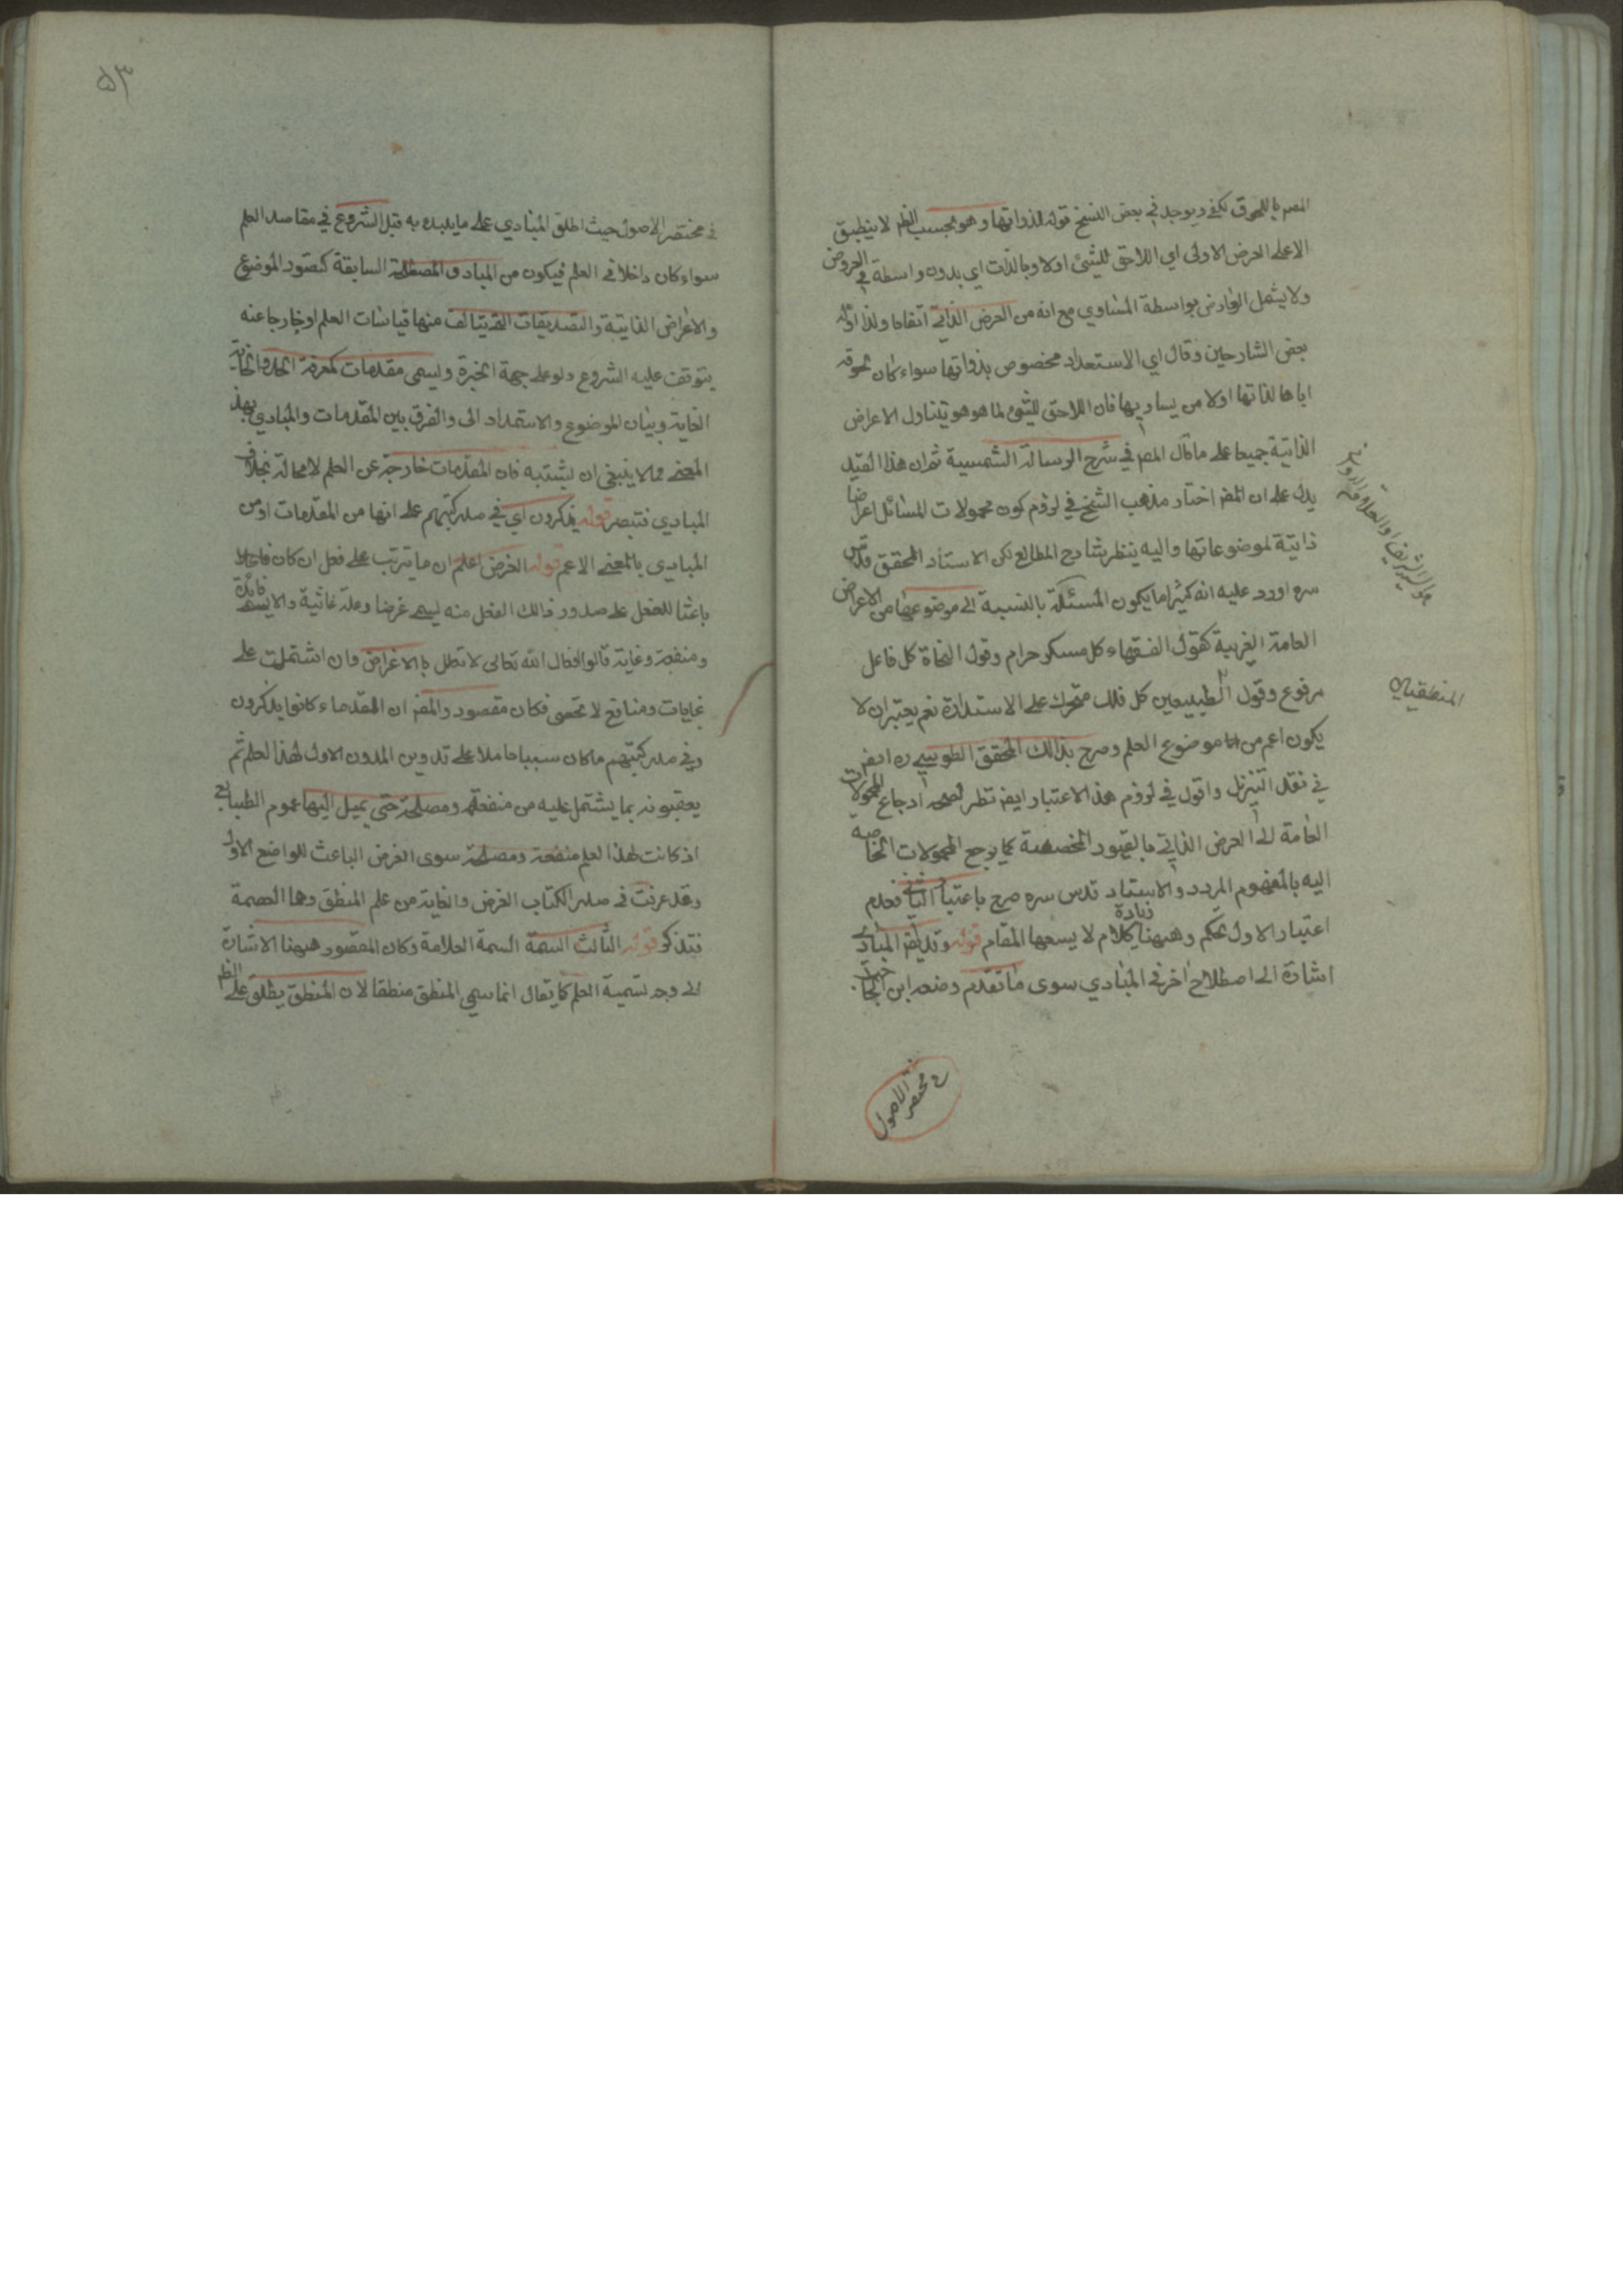 المصر باللحوق نكفي ويوجد في بعض النسخ قوله لذواتها وهو بحسب الظم لا ينطبق
الا على العرض الاولى اي اللاحق للشئ اولا وبالذات اي بدون واسطة في العروض
ولا يشمل العارض بواسطة المساوي مع انه من العرض الذاتي اتفاقا ولذا اوله
بعض الشارحين وقال اي الاستعداد مخصوص بذواتها سواء كان لحوقه
اياها لذاتها او لامر يساويها فان اللاحق للشئ لما هو هو يتناول الاعراض
الذاتية جميعا على ما قال المصر في شرح الرسالة الشمسية ثم ان هذا القيد
يدل على ان المصر اختار مذهب الشيخ في لزوم كون محمولات المسائل اعراضا
ذاتية لموضوعاتها واليه ينظر شارح المطالع لكن الاستاد المحقق قدس
سره اورد عليه انه كثيرا ما يكون المسئلة بالنسبة الى موضوعها من الاعراض
العامة الغريبة كقول الفقهاء كل مسكر حرام وقول النحاة كل فاعل
مرفوع وقول الطبيعيين كل فلك متحرك على الاستدارة نعم يعتبر ان لا
يكون اعم من موضوع العلم وصرح بذلك المحقق الطوسي ره ايضا
في نقد التنزيل واقول في لزوم هذا الاعتبار ايضا نظر لصحة ارجاع المحمولات
العامة الى العرض الذاتي بالقيود المخصصة كما يرجع المحمولات الخاصة
اليه بالمفهوم المردد والاستاد قدس سره صرح باعتبار الثاني فعدم
اعتبار الاول تحكم وههنا زيادة كلام لا يسعها المقام قوله وقد يقر المبادي
اشارة الى اصطلاح اخر في المبادي سوى ما تقدم وضعه ابن الحاجب
في مختصر الاصول
هو السيد الشريف او العلامة الدواني
المنطقيان
۵۳
في مختصر الاصول حيث اطلق المبادي على ما يبدء به قبل الشروع في مقاصد العلم
سواء كان داخلا في العلم فيكون من المبادي المصطلحة السابقة كتصور الموضوع
والاعراض الذاتية والتصديقات التي يتالف منها قياسات العلم او خارجا عنه
يتوقف عليه الشروع ولو على جهة الخبرة ويسمى مقدمات كمعرفة الحد والغاية
الغاية وبيان الموضوع والاستمداد الى والفرق بين المقدمات والمبادي بهذا
المعنى مما لا ينبغي ان يشتبه فان المقدمات خارجة عن العلم لا محالة بخلاف
المبادي فتبصر قوله يذكرون اي في صدر كتبهم على انها من المقدمات او من
المبادي بالمعنى الاعم قوله الغرض اعلم ان ما يترتب على فعل ان كان
باعثا للفعل على صدور ذلك الفعل منه يسمى غرضا وعلة غائية والا يسمى فائدة
ومنفعة وغاية قالوا افعال الله تعالى لا تعلل بالاغراض وان اشتملت على
غايات ومنافع لا تحصى فكان مقصود والمصر ان القدماء كانوا يذكرون
في صدر كتبهم ما كان سببا حاملا على تدوين المدون الاول لهذا لعلم ثم
يعقبونه بما يشتمل عليه من منفعة ومصلحة حتى يميل اليها عموم الطبايع
اذ كانت لهذا لعلم منفعة ومصلحة سوى الغرض الباعث للواضع الاول
وقد عرفت في صدر الكتاب الغرض والغاية من علم المنطق وهما العصمة
فتذكر قوله الثالث السمة السمة العلامة وكان المقصود ههنا الاشارة
الى وجه تسمية العلم كما يقال انما سمي المنطق منطقا لان المنطق يطلق على الظم